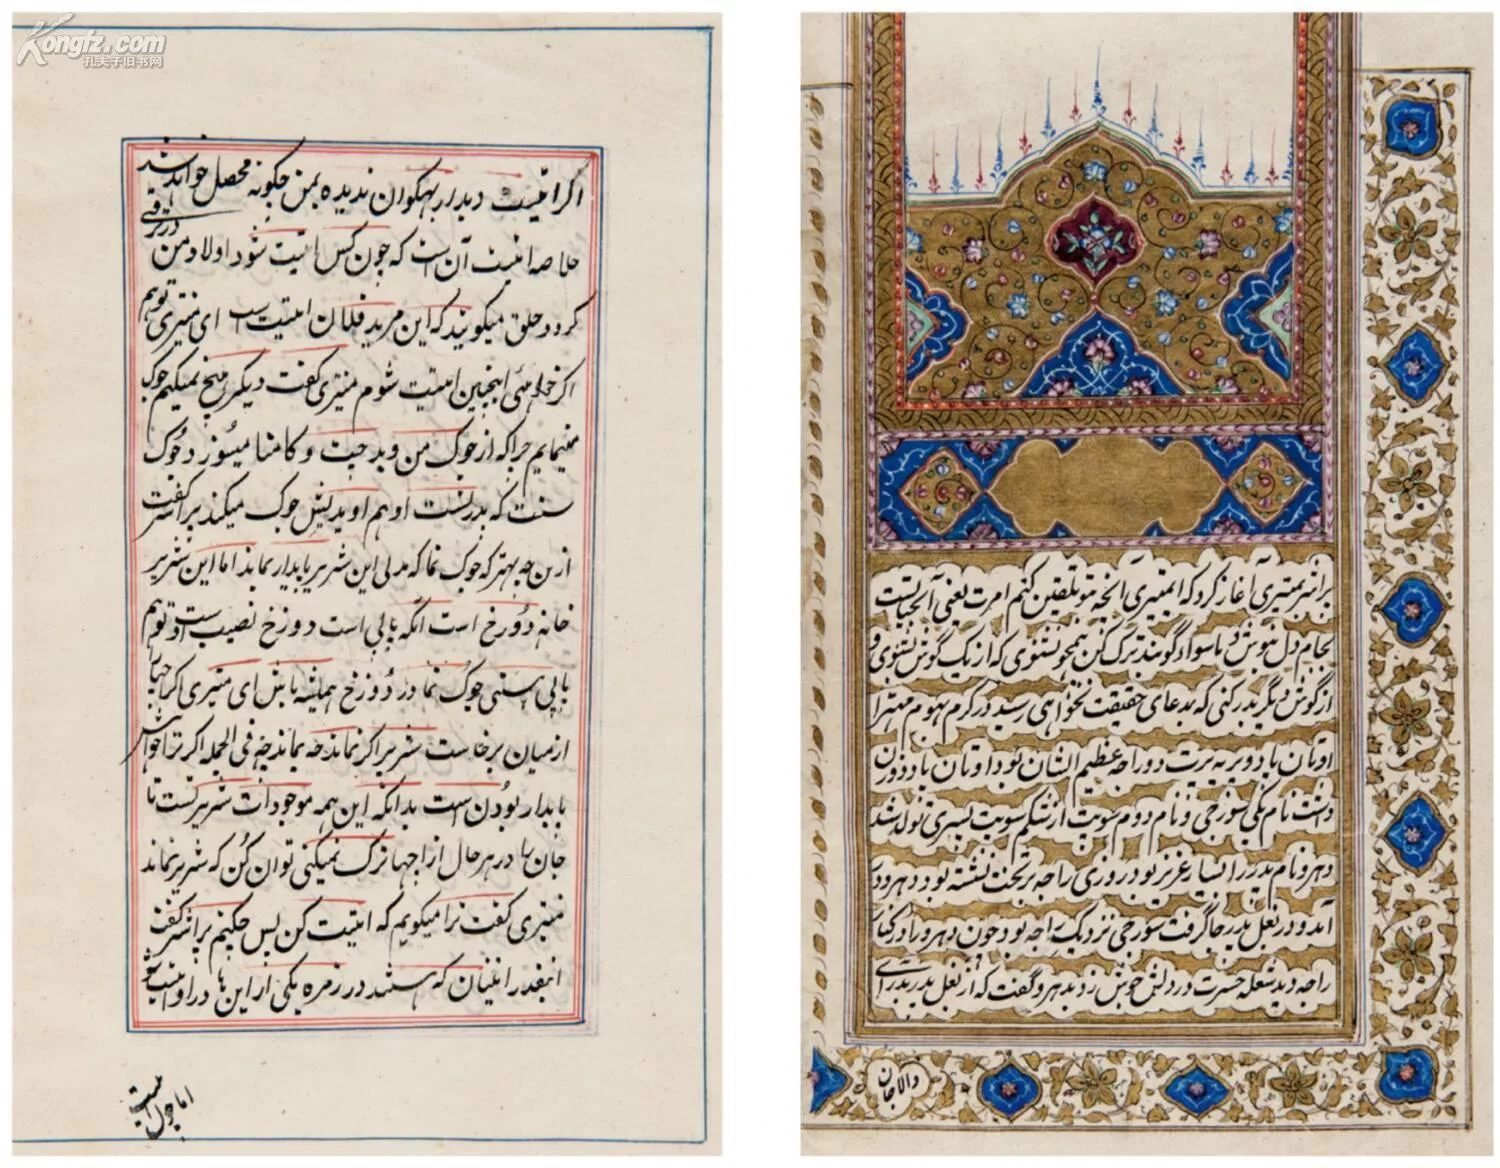 Kongfz.com
孔夫子旧书网
اگر انتیت دیدار بهگوان ندیده بمن چگونه محصل خواهد شد
درترقی
خلاصه انتیت آن است که چون کس انتیت شود اولاد من
گردد خلق میگویند که این مرید فلان انتیت است ای منتری تو هم
اگر خواهی اینچنین انتیت شوم منتری گفت دیگر هیچ نمیگیم جوک
مینمایم چراکه از جوک من و بد چیت و کامنا میسوزد و جوک
سنت که پدر تست او هم اویدیش جوک میکند پراسر گفت
ازین چه بهتر که جوک نما که بدلی این شریر پایدار بماند اما این شریر
خانه دوزخ است آنکه پاپی است دوزخ نصیب است او تو هم
پاپی هستی جوک نما در دوزخ همیشه باش ای منتری اگر جهان
از میان برخاست شریر اگر نماند چه بماند چه فی الجمله اگر ترا خواهش
پایدار بودن است بدانکه این همه موجودات شریر تست تا
جان ها در هر حال از اجها ترک نمیکنی توان کن که شریر نماند
منتری گفت ترا میگویم که انتیت کن پس چکنیم پراسر گفت
اینقدر انتیان که هستند در زمره یکی از این ها در او انتیت شو
اما چون
براسر بمتری آغاز کرد که ای متیری آنچه بتو تلقین کنم امرت یعنی آبحیاتست
بجام دل بنوش و ماسوا گویند ترک کن همچو نشنوی که از یک گوش بشنوی و
از گوش دیگر بدر کنی که بدعای حقیقت نخواهی رسید در کرم بهوم مهترا
اوتان پاد و پریه برت دو راجه عظیم الشان بود اوتان پاد دو زن
داشت نام یکی سورجی و نام دوم سویت از شکم سویت پسری تولد شد
دهرو نام پدر را بسیار عزیز بود روزی راجه بر تخت نشسته بود دهرو در
آمد و در بغل پدر جا گرفت سورجی نزدیک راجه بود چون دهرو را در کنار
راجه دید شعله حسرت در دلش جوش زد بدهرو گفت که از بغل پدر بدر آی
والاجان